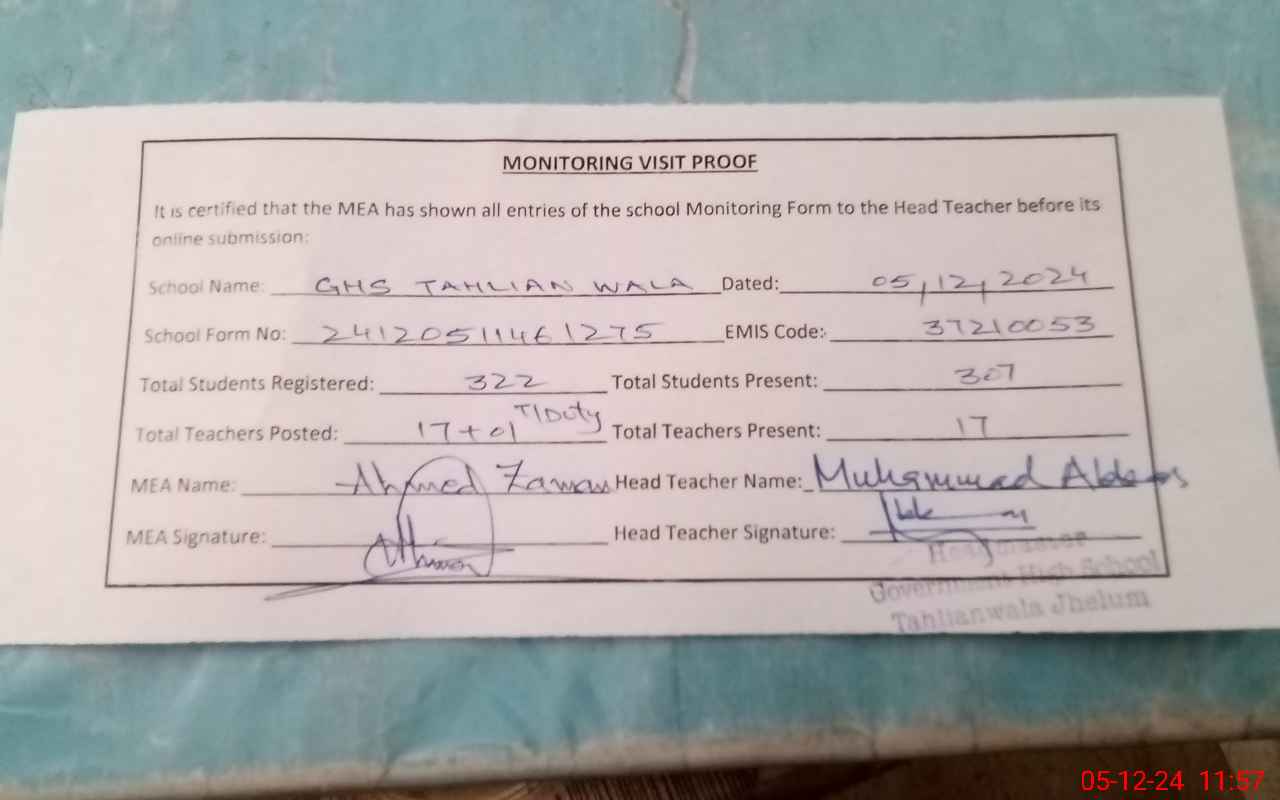 MONITORING VISIT PROOF
It is certified that the MEA has shown all entries of the school Monitoring Form to the Head Teacher before its
online submission:
School Name: GHS TAHLIAN WALA Dated: 05,12,2024
School Form No: 24120511461275 EMIS Code: 37210053
Total Students Registered: 322 Total Students Present: 307
Total Teachers Posted: 17+01 T/Duty Total Teachers Present: 17
MEA Name: Ahmed Zaman Head Teacher Name: Muhammad Abbas
MEA Signature: Head Teacher Signature:
Headmaster
Government High School
Tahlianwala Jhelum
05-12-24 11:57